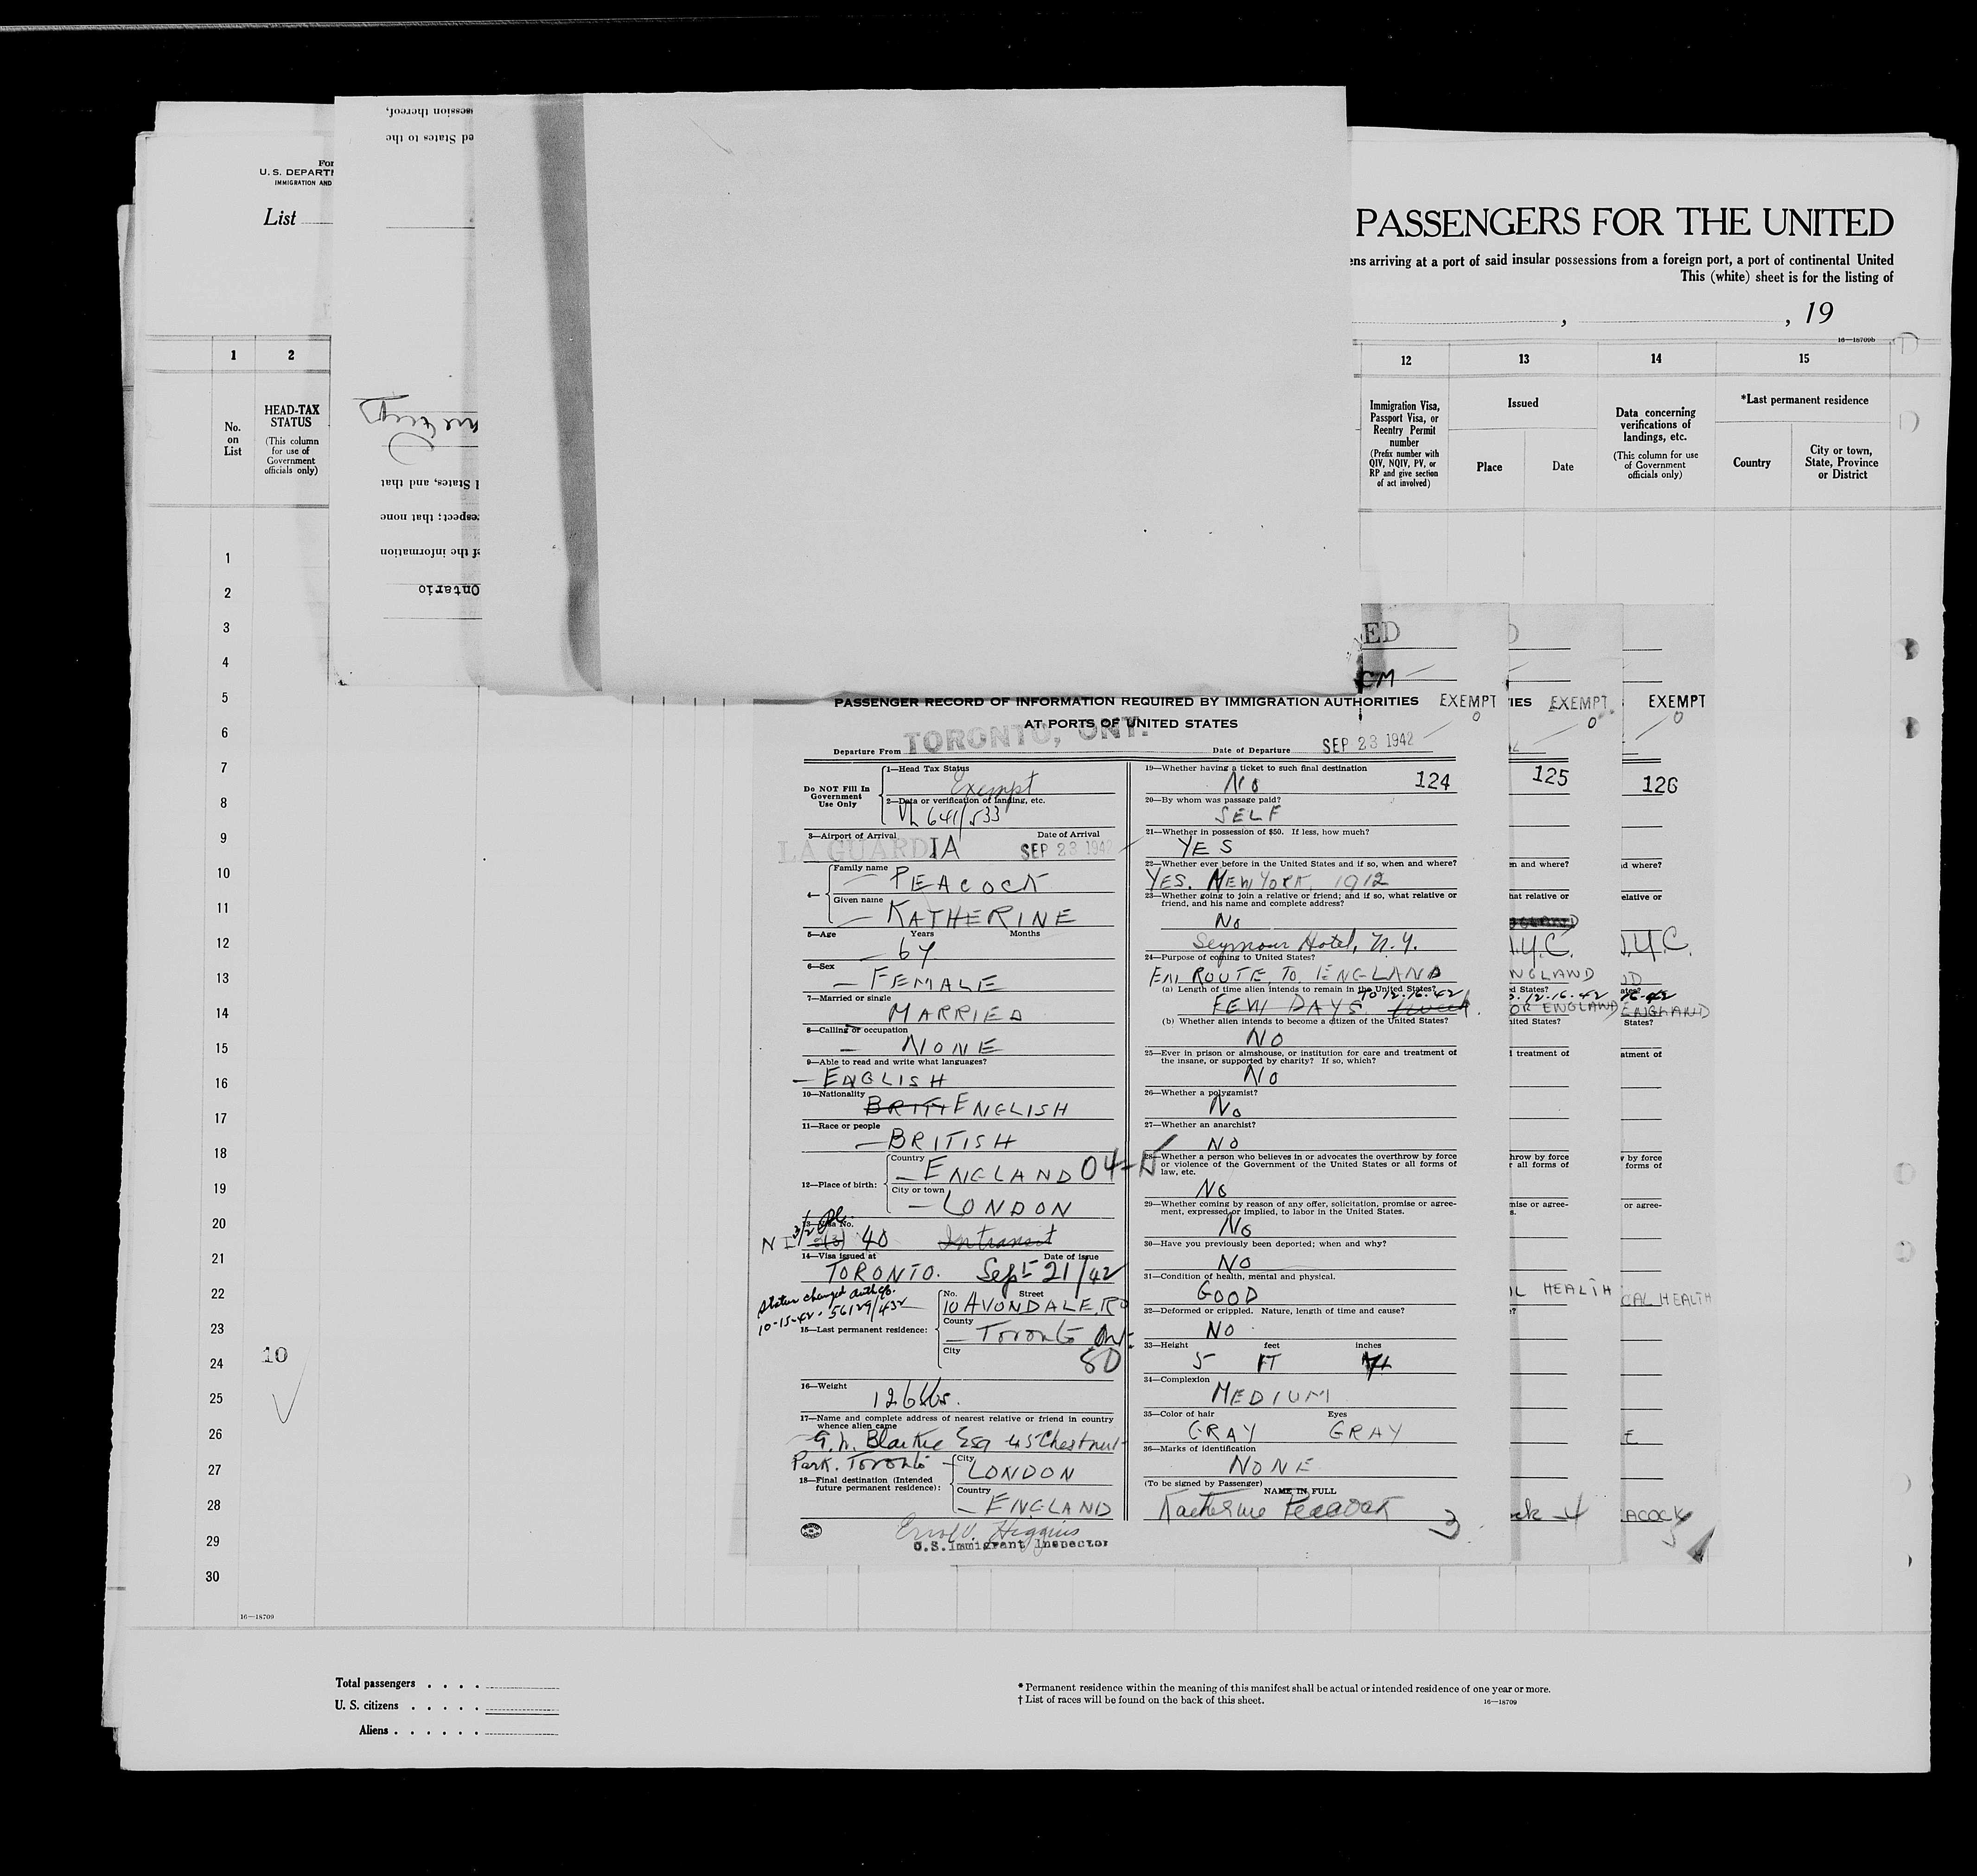 For
U. S. DEPARTM
IMMIGRATION AND
List
PASSENGERS FOR THE UNITED
ens arriving at a port of said insular possessions from a foreign port, a port of continental United
This (white) sheet is for the listing of
, , 19
16—18709b
1 2 12 13 14 15
No. on List
HEAD-TAX STATUS
(This column for use of Government officials only)
Immigration Visa, Passport Visa, or Reentry Permit number
(Prefix number with QIV, NQIV, PV, or RP and give section of act involved)
Issued
Place Date
Data concerning verifications of landings, etc.
(This column for use of Government officials only)
*Last permanent residence
Country
City or town, State, Province or District
session thereof,
ed States to the
d States, and that
respect; that none
of the information
Ontario
1
2
3
4
5
6
7
8
9
10
11
12
13
14
15
16
17
18
19
20
21
22
23
24
25
26
27
28
29
30
10
16—18709
ED
CM
PASSENGER RECORD OF INFORMATION REQUIRED BY IMMIGRATION AUTHORITIES
AT PORTS OF UNITED STATES
EXEMPT
0
Departure From TORONTO, ONT. Date of Departure SEP 23 1942
Do NOT Fill In Government Use Only
1—Head Tax Status
Exempt
2—Data or verification of landing, etc.
VL 641/533
3—Airport of Arrival Date of Arrival
LA GUARDIA SEP 23 1942
4—
Family name PEACOCK
Given name KATHERINE
5—Age Years Months
64
6—Sex
FEMALE
7—Married or single
MARRIED
8—Calling or occupation
NONE
9—Able to read and write what languages?
ENGLISH
10—Nationality
BRITI ENGLISH
11—Race or people
BRITISH
12—Place of birth:
Country
ENGLAND 04-N
City or town
LONDON
13—Visa No.
NI 3/2 3(3) 40 Intransit
14—Visa issued at Date of issue
TORONTO. Sept 21/42
Status changed auth co.
10-15-42. 56129/432
15—Last permanent residence:
No. Street
10 AVONDALE Rd
County
Toronto Ont.
City
80
16—Weight
126 lbs.
17—Name and complete address of nearest relative or friend in country
whence alien came
G. W. Blaikie Esq 45 Chestnut
Park. Toronto
18—Final destination (Intended
future permanent residence):
City
LONDON
Country
ENGLAND
Errol V. Higgins
U.S. Immigrant Inspector
19—Whether having a ticket to such final destination
No 124
20—By whom was passage paid?
SELF
21—Whether in possession of $50. If less, how much?
YES
22—Whether ever before in the United States and if so, when and where?
YES. NEW YORK, 1912
23—Whether going to join a relative or friend; and if so, what relative or
friend, and his name and complete address?
No
Seymour Hotel, N.Y.
24—Purpose of coming to United States?
EN ROUTE TO ENGLAND
(a) Length of time alien intends to remain in the United States?
FEW DAYS. TO 12.16.42
(b) Whether alien intends to become a citizen of the United States?
NO
25—Ever in prison or almshouse, or institution for care and treatment of
the insane, or supported by charity? If so, which?
No
26—Whether a polygamist?
No
27—Whether an anarchist?
NO
28—Whether a person who believes in or advocates the overthrow by force
or violence of the Government of the United States or all forms of
law, etc.
No
29—Whether coming by reason of any offer, solicitation, promise or agree-
ment, expressed or implied, to labor in the United States.
No
30—Have you previously been deported; when and why?
NO
31—Condition of health, mental and physical.
GOOD
32—Deformed or crippled. Nature, length of time and cause?
NO
33—Height feet inches
5 FT
34—Complexion
MEDIUM
35—Color of hair Eyes
GRAY GRAY
36—Marks of identification
NONE
(To be signed by Passenger)
NAME IN FULL
Katherine Peacock
3
IES EXEMPT
0
125
n and where?
hat relative or
N.Y.C.
NGLAND
d States?
12-16-42
OR ENGLAND
nited States?
l treatment of
hrow by force
r all forms of
mise or agree-
s.
L HEALTH
?
ck 4
EXEMPT
0
126
d where?
elative or
N.Y.C.
D
ates?
16-42
ENGLAND
States?
atment of
w by force
forms of
or agree-
CAL HEALTH
E
ACOCK
5
Total passengers . . . .
U. S. citizens . . . . .
Aliens . . . . . .
* Permanent residence within the meaning of this manifest shall be actual or intended residence of one year or more.
† List of races will be found on the back of this sheet. 16—18709